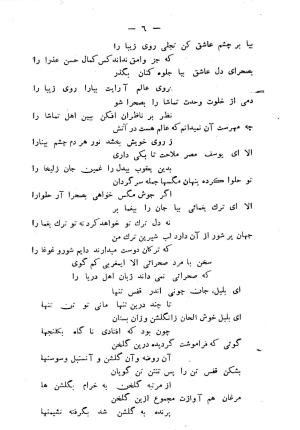 — ٦ —
بیا بر چشم عاشق کن تجلی روی زیبا را
که جز وامق نداند کس کمال حسن عذرا را
بصحرای دل عاشق بیا جلوه کنان بگذر
روی عالم آرایت بیارا روی زیبا را
دمی از خلوت وحدت تماشا را بصحرا شو
نظر بر ناظران افکن ببین اهل تماشا را
چه مهرست آن نمیدانم که عالم هست در آتش
ز روی خویش بخشد نور هر دم چشم بینارا
الا ای یوسف مصر ملاحت تا بکی داری
بدین یعقوب بیدل را غمین جان زلیخا را
تو حلوا کرده پنهان مگسها جمله سرگردان
اگر جوش مگس خواهی بصحرا آر حلوارا
الا ای ترك یغمائی بیا جان را بیغما بر
نه دل ترك تو خواهد کرد نه تو ترك یغما را
جهان پر شور از آن دارد لب شیرین ترك من
که ترکان دوست میدارند دایم شور و غوغا را
سخن با مرد صحرائی الا ایمغربی کم گوی
که صحرائی نمی داند زبان اهل دریا را
ای بلبل جان چونی اندر قفس تنها
تا چند درین تنها مانی تو تن تنها
ای بلبل خوش الحان زانگلشن وزان بستان
چون بود که افتادی نا گاه بگلخنها
گوئی که فراموشت گردیده درین گلخن
آن روضه وآن گلشن و آنسنبل وسوسنها
بشکن قفس تن را پس تنتن تن گویان
از مرتبه گلخن به خرام بگلشن ها
مرغان هم آوازت مجموع ازین گلخن
پرنده به گلشن شد بگرفته نشیمنها